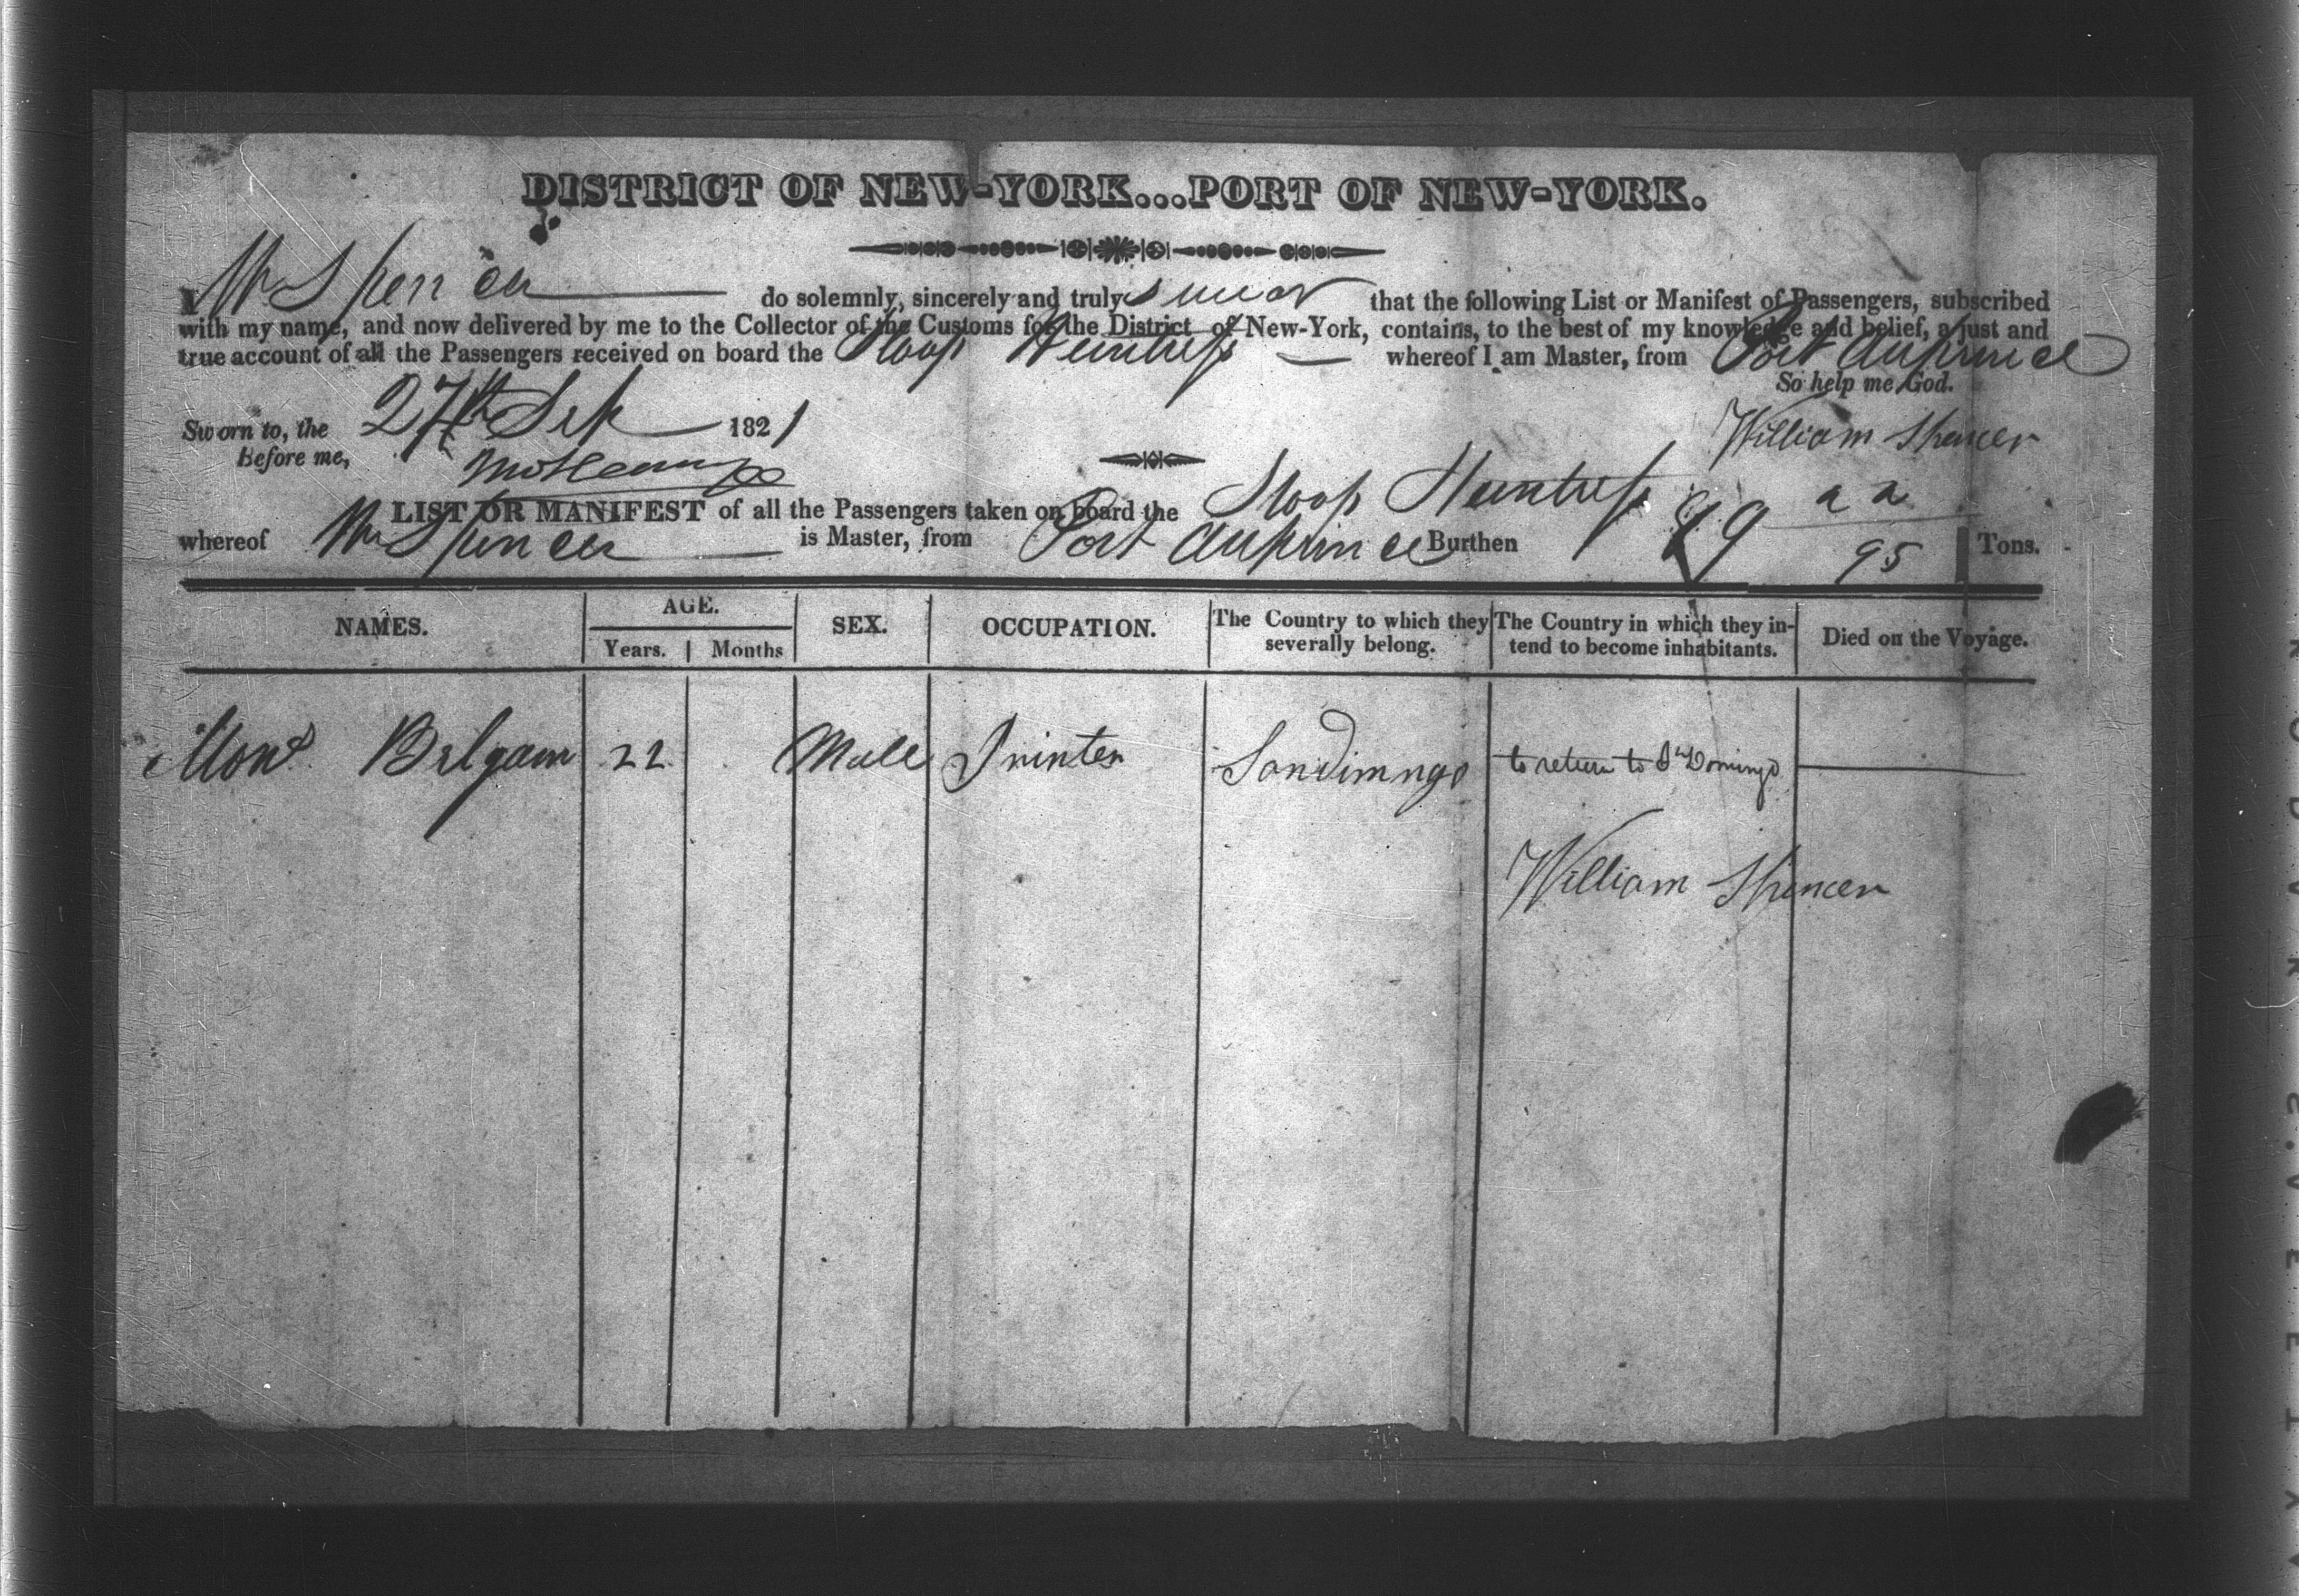 DISTRICT OF NEW-YORK...PORT OF NEW-YORK.
I Wm Spencer do solemnly, sincerely and truly swear that the following List or Manifest of Passengers, subscribed
with my name, and now delivered by me to the Collector of the Customs for the District of New-York, contains, to the best of my knowledge and belief, a just and
true account of all the Passengers received on board the Sloop Huntress whereof I am Master, from Port Auprince
So help me God.
Sworn to, the 27th Sep 1821
William Spencer
Before me,
LIST OR MANIFEST of all the Passengers taken on board the Sloop Huntress
whereof Wm Spencer is Master, from Port Auprince Burthen 89 22/95 Tons.
NAMES. AGE. SEX. OCCUPATION. The Country to which they severally belong. The Country in which they intend to become inhabitants. Died on the Voyage.
Years. Months
Mons Belgam 22 Male Printer Sandimngo to return to St Domingo
William Spencer